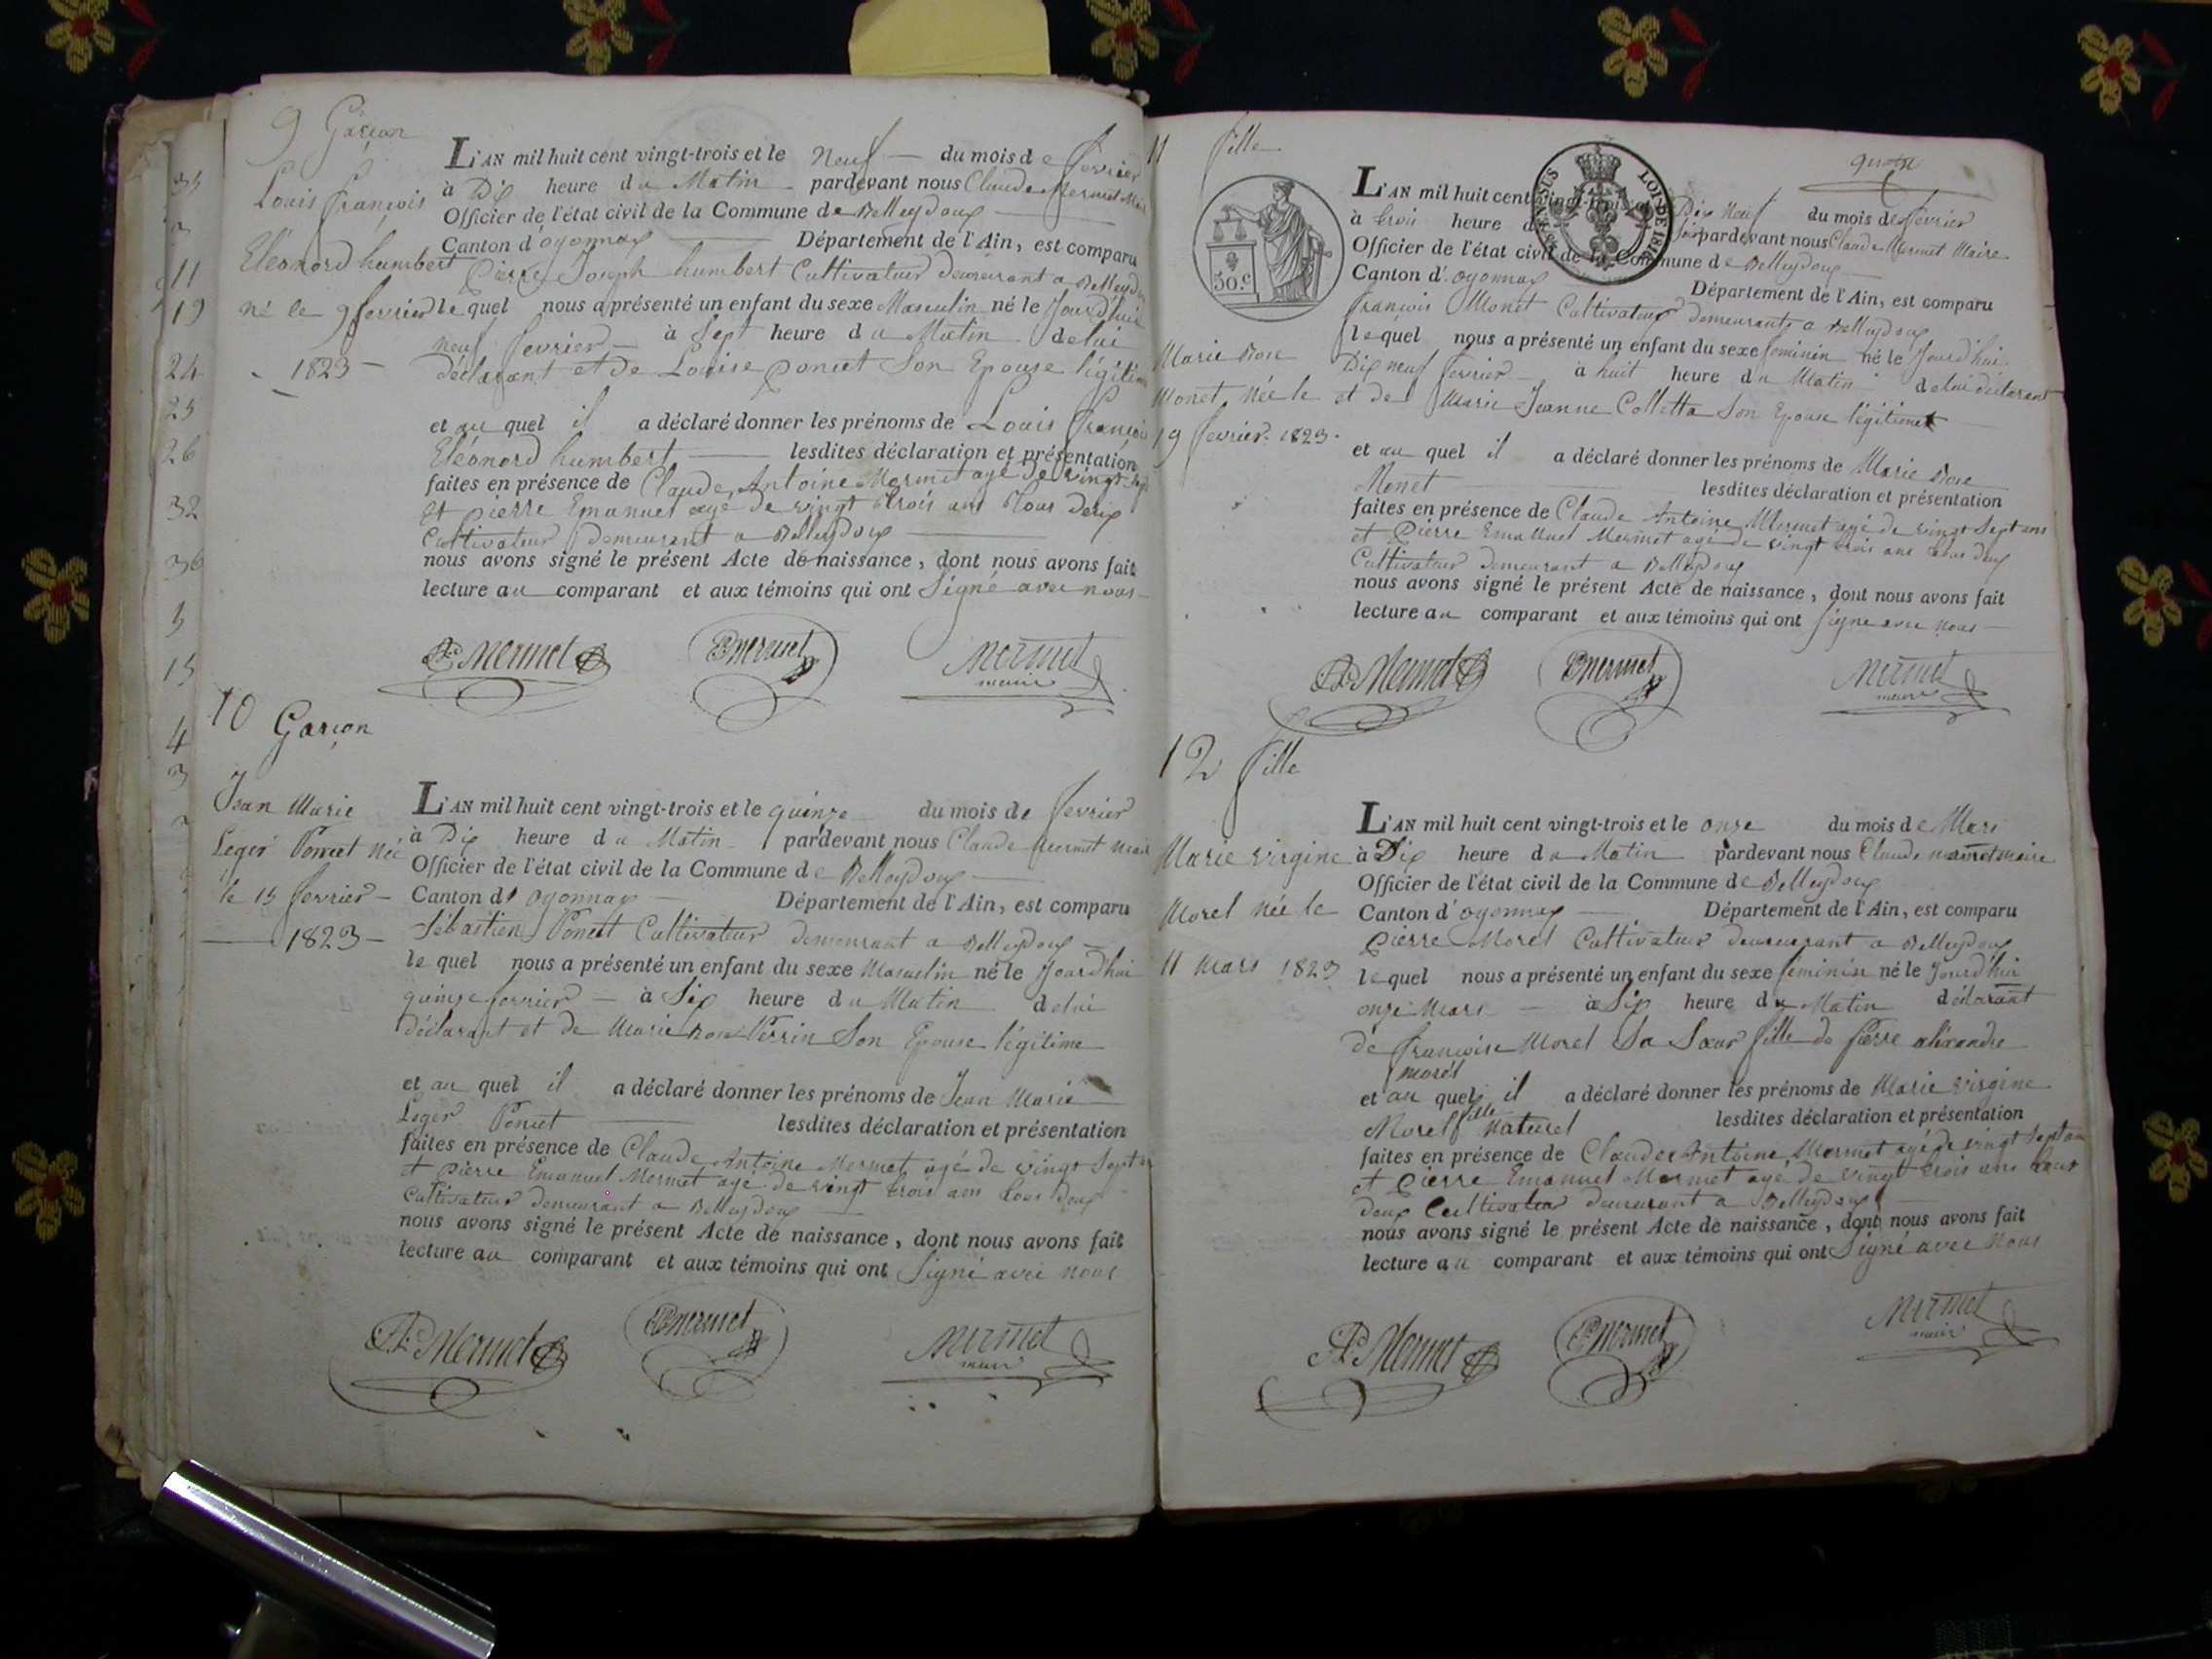 9 Garçon
Louis François
Eléonord humbert
né le 9 fevrier
1823
L'AN mil huit cent vingt-trois et le Neuf du mois de fevrier
à Dix heure du Matin pardevant nous Claude Mermet
Officier de l'état civil de la Commune de Belleydoux
Canton d'oyonnax Département de l'Ain, est comparu
Pierre Joseph humbert Cultivateur demeurant a
le quel nous a présenté un enfant du sexe Masculin né le Jourd'hui
neuf fevrier à Sept heure du Matin de lui
déclarant et de Louise poncet Son Epouse
et au quel il a déclaré donner les prénoms de Louis François
Eléonord humbert lesdites déclaration et présentation
faites en présence de Claude Antoine Mermet agé de vingt
et pierre Emanuel agé de vingt trois ans tous deux
Cultivateur demeurant a Belleydoux
nous avons signé le présent Acte de naissance, dont nous avons fait
lecture au comparant et aux témoins qui ont Signé avec nous
Mermet Mermet Mermet
maire
10 Garçon
Jean Marie
Leger Poncet Née
le 15 fevrier
1823
L'AN mil huit cent vingt-trois et le quinze du mois de fevrier
à Dix heure du Matin pardevant nous Claude Mermet
Officier de l'état civil de la Commune de Belleydoux
Canton d'oyonnax Département de l'Ain, est comparu
Sébastien Poncet Cultivateur demeurant a Belleydoux
le quel nous a présenté un enfant du sexe Masculin né le Jourd'hui
quinze fevrier à Six heure du Matin de lui
déclarant et de Marie Rose Perrin Son Epouse légitime
et au quel il a déclaré donner les prénoms de Jean Marie
Leger Poncet lesdites déclaration et présentation
faites en présence de Claude Antoine Mermet agé de vingt Sept
et pierre Emanuel Mermet agé de vingt trois ans tous deux
Cultivateur demeurant a Belleydoux
nous avons signé le présent Acte de naissance, dont nous avons fait
lecture au comparant et aux témoins qui ont Signé avec nous
Mermet Mermet Mermet
maire
11 fille
Marie Rose
Monet Née le
19 fevrier 1823
quatre
30.c
LOI DE 1816
L'AN mil huit cent vingt-trois Dix Neuf du mois de fevrier
à trois heure pardevant nous Claude Mermet Maire
Officier de l'état civil de la Commune de Belleydoux
Canton d'oyonnax Département de l'Ain, est comparu
françois Monet Cultivateur demeurant a Belleydoux
le quel nous a présenté un enfant du sexe feminin né le Jourd'hui
Dix neuf fevrier à huit heure du Matin de lui déclarant
et de Marie Jeanne Colletta Son Epouse légitime
et au quel il a déclaré donner les prénoms de Marie Rose
Monet lesdites déclaration et présentation
faites en présence de Claude Antoine Mermet agé de vingt Sept ans
et Pierre Emanuel Mermet agé de vingt trois ans tous deux
Cultivateur demeurant a Belleydoux
nous avons signé le présent Acte de naissance, dont nous avons fait
lecture au comparant et aux témoins qui ont Signé avec nous
Mermet Mermet Mermet
maire
12 fille
Marie virgine
Morel Née le
11 Mars 1823
L'AN mil huit cent vingt-trois et le onze du mois de Mars
à Dix heure du Matin pardevant nous Claude mermet maire
Officier de l'état civil de la Commune de Belleydoux
Canton d'oyonnax Département de l'Ain, est comparu
Pierre Morel Cultivateur demeurant a Belleydoux
le quel nous a présenté un enfant du sexe feminin né le Jourd'hui
onze Mars à Six heure du Matin déclarant
de françoise Morel Sa Sœur fille de pierre
morel
et au quel il a déclaré donner les prénoms de Marie virgine
Morel fille Naturel lesdites déclaration et présentation
faites en présence de Claude Antoine Mermet agé de vingt Sept ans
et Pierre Emanuel Mermet agé de vingt trois ans tous
deux Cultivateur demeurant a Belleydoux
nous avons signé le présent Acte de naissance, dont nous avons fait
lecture au comparant et aux témoins qui ont Signé avec Nous
Mermet Mermet Mermet
maire